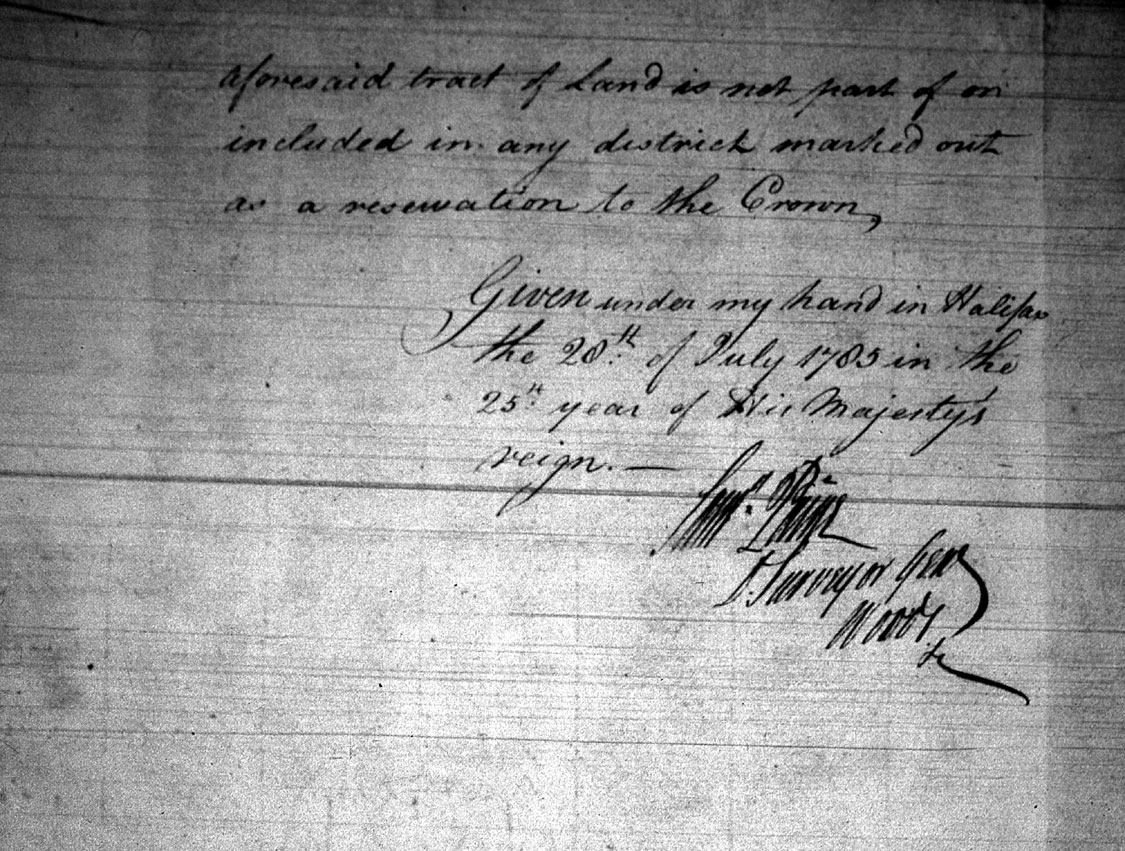 aforesaid tract of Land is not part of or
included in any district marked out
as a reservation to the Crown,
Given under my hand in Halifax
the 28th. of July 1785 in the
25th. year of His Majestys
reign. —
D. Surveyor Gen
Woods